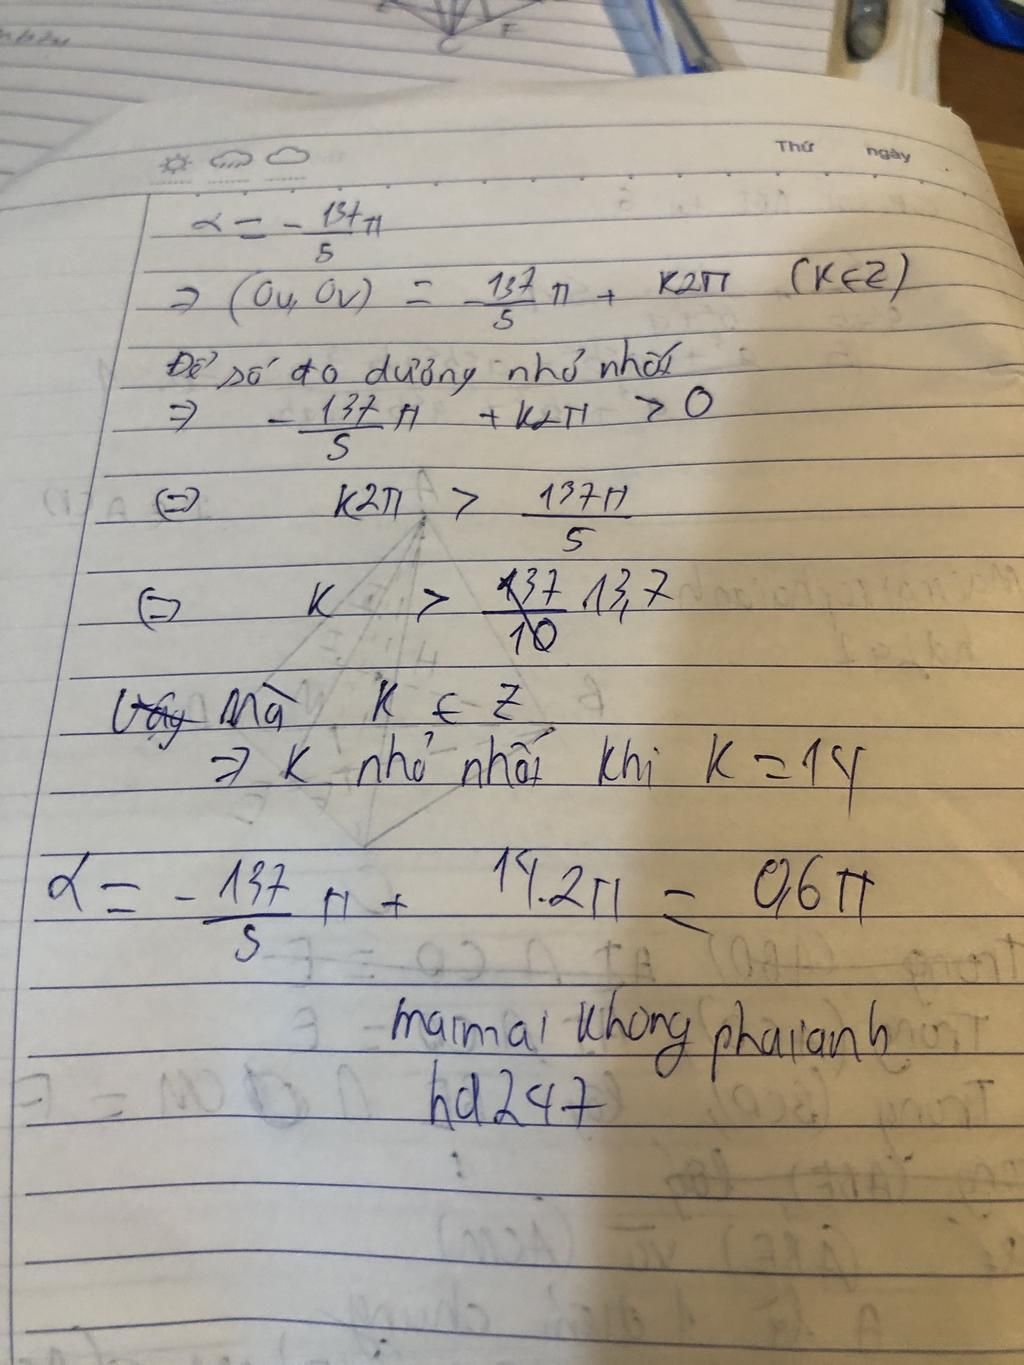 Thứ ngày
α = - 137/5 π
⇒ (Ou, Ov) = - 137/5 π + K2π (K ∈ Z)
Để số đo dương nhỏ nhất
⇒ - 137/5 π + K2π > 0
⇔ K2π > 137π/5
⇔ K > 137/10 13,7
Vậy Mà K ∈ Z
⇒ K nhỏ nhất khi K = 14
α = - 137/5 π + 14.2π = 0,6π
maimai khong phaianh
hd247